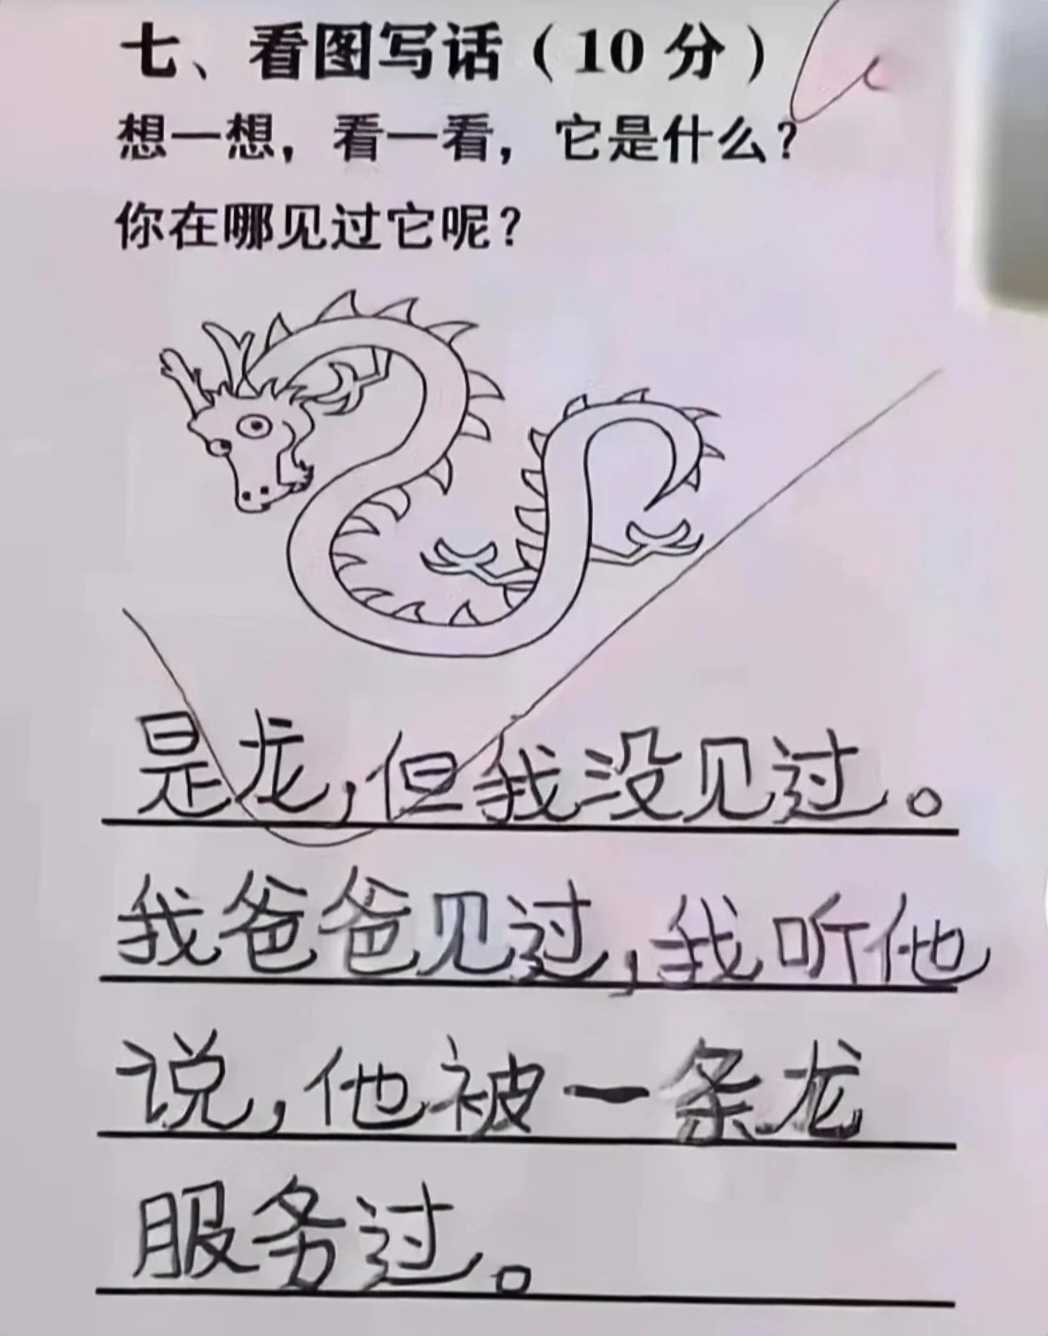 七、看图写话（10 分）
想一想，看一看，它是什么？
你在哪见过它呢？
是龙，但我没见过。
我爸爸见过，我听他
说，他被一条龙
服务过。